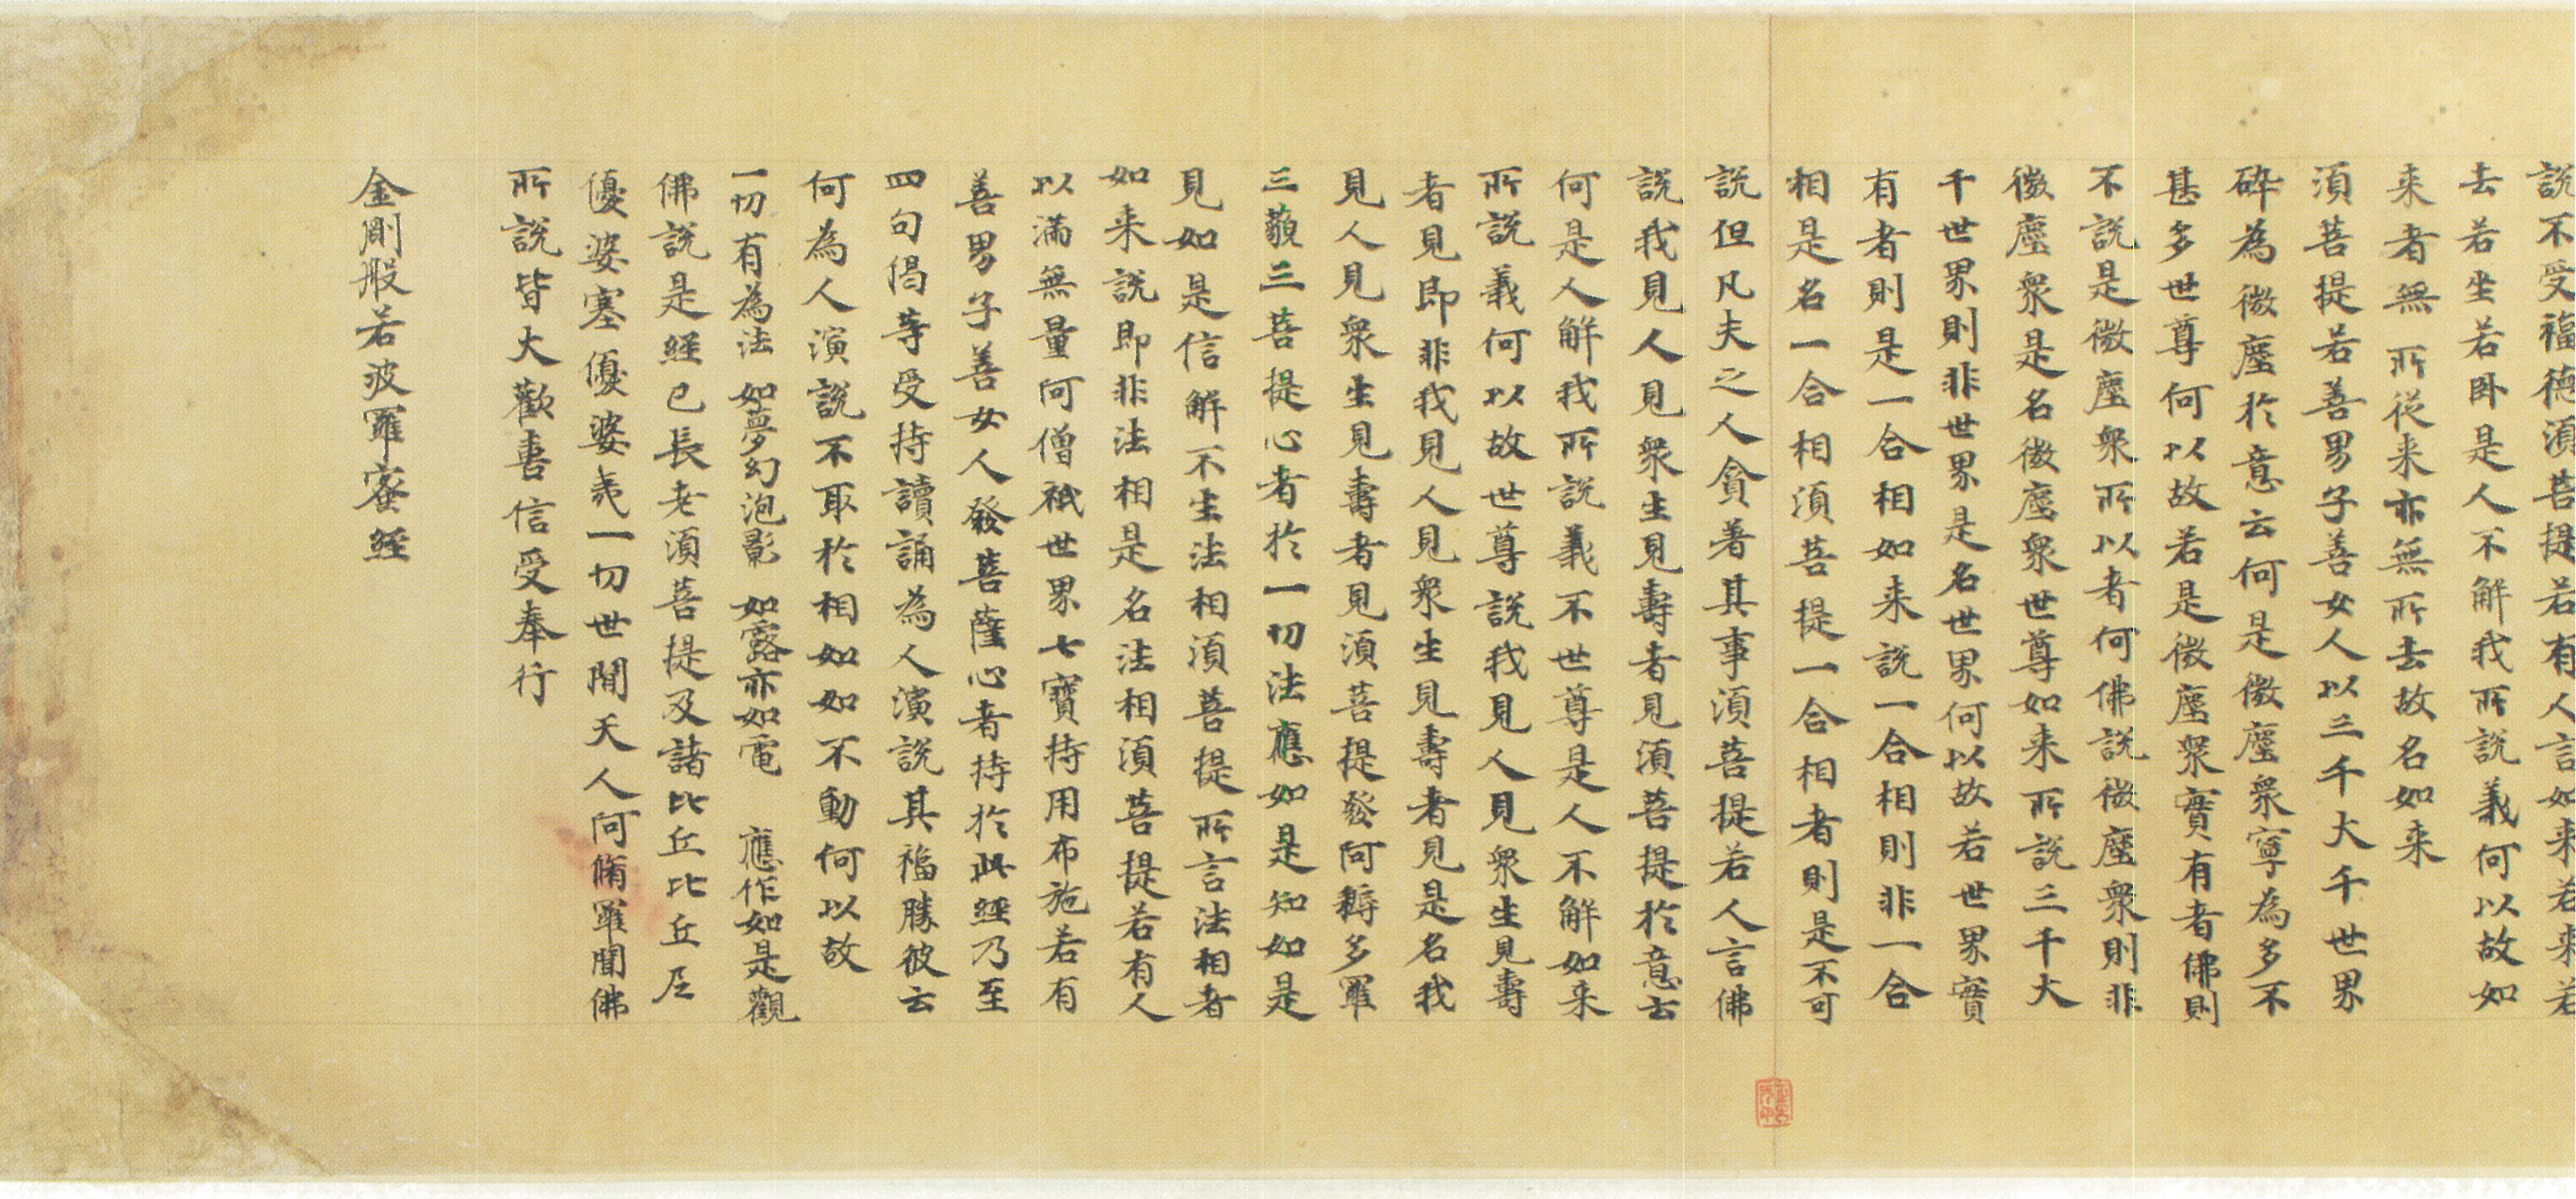 說不受福德須菩提若有人言如来若来若
去若坐若卧是人不解我所說義何以故如
来者無所從来亦無所去故名如来
須菩提若善男子善女人以三千大千世界
碎為微塵於意云何是微塵衆寧為多不
甚多世尊何以故若是微塵衆實有者佛則
不說是微塵衆所以者何佛說微塵衆則非
微塵衆是名微塵衆世尊如来所說三千大
千世界則非世界是名世界何以故若世界實
有者則是一合相如来說一合相則非一合
相是名一合相須菩提一合相者則是不可
說但凡夫之人貪著其事須菩提若人言佛
說我見人見衆生見壽者見須菩提於意云
何是人解我所說義不世尊是人不解如来
所說義何以故世尊說我見人見衆生見壽
者見即非我見人見衆生見壽者見是名我
見人見衆生見壽者見須菩提發阿耨多羅
三藐三菩提心者於一切法應如是知如是
見如是信解不生法相須菩提所言法相者
如来說即非法相是名法相須菩提若有人
以滿無量阿僧祇世界七寶持用布施若有
善男子善女人發菩薩心者持於此經乃至
四句偈等受持讀誦為人演說其福勝彼云
何為人演說不取於相如如不動何以故
一切有為法 如夢幻泡影 如露亦如電 應作如是觀
佛說是經已長老須菩提及諸比丘比丘尼
優婆塞優婆夷一切世間天人阿脩羅聞佛
所說皆大歡喜信受奉行
金剛般若波羅蜜經